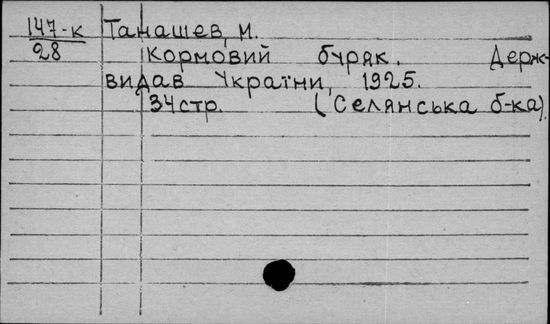 147-к Танашев, М.
28 Кормовий буряк. Держ-
видав України, 1925.
34 стр. (Селянська б-ка).